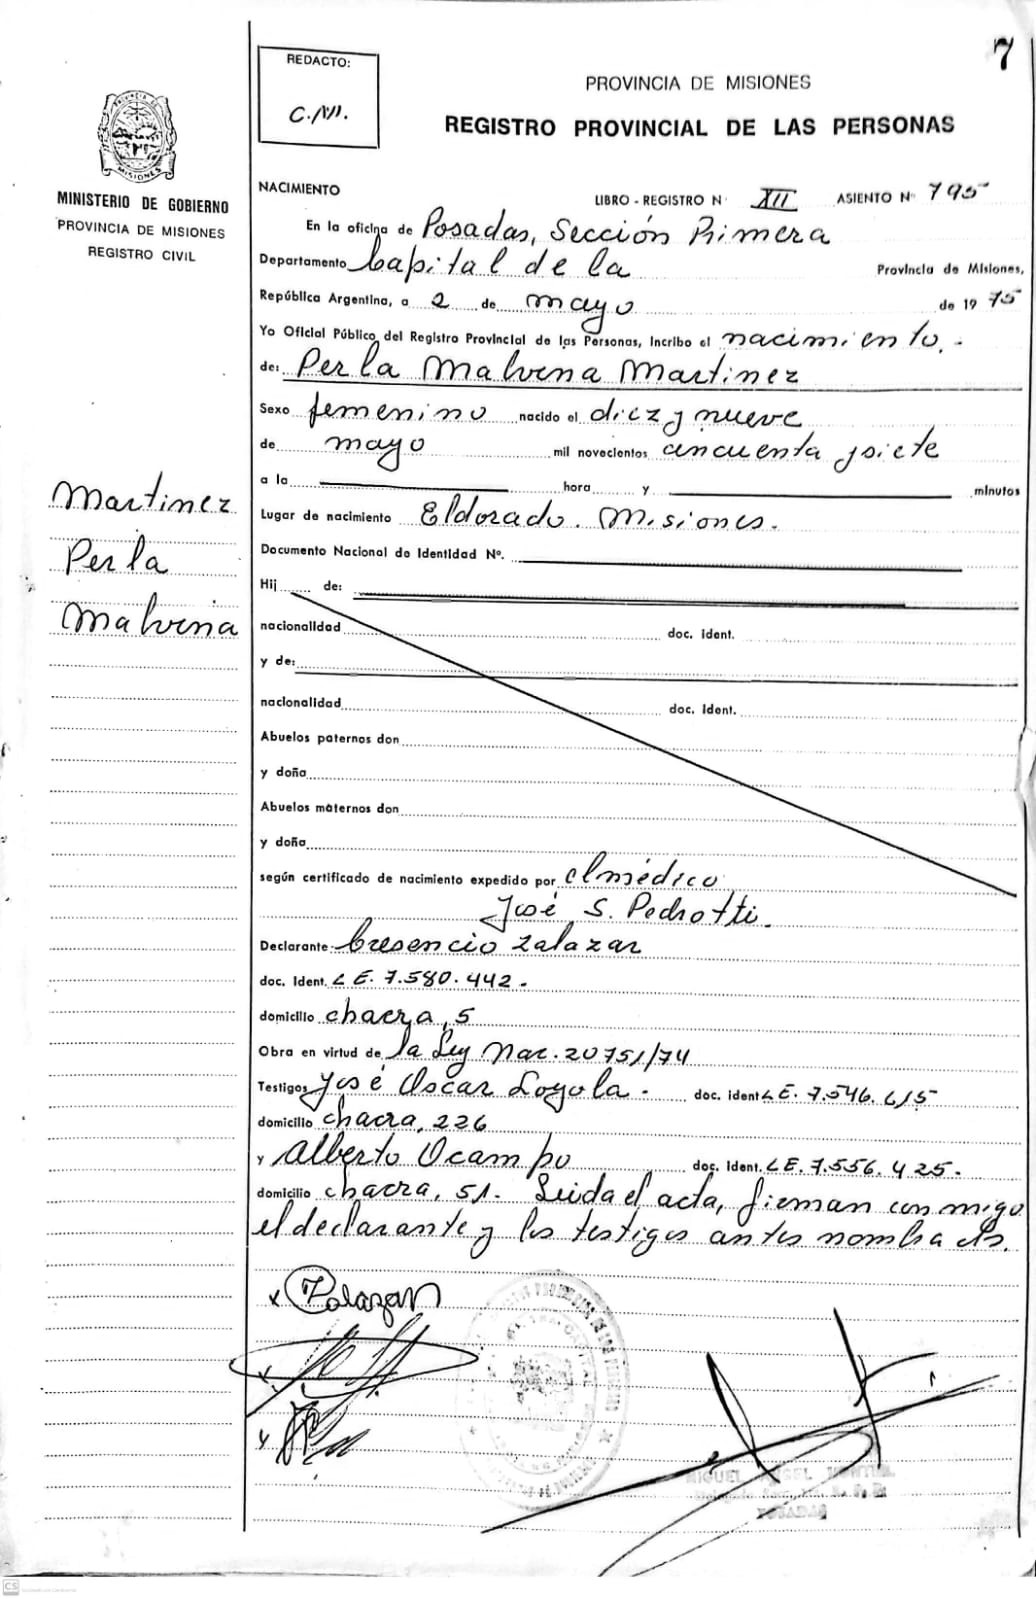 7
REDACTO:
C.M.
PROVINCIA DE MISIONES
REGISTRO PROVINCIAL DE LAS PERSONAS
PROVINCIA DE
MISIONES
MINISTERIO DE GOBIERNO
PROVINCIA DE MISIONES
REGISTRO CIVIL
NACIMIENTO
LIBRO - REGISTRO N· XII ASIENTO Nº 795
En la oficina de Posadas, Sección Primera
Departamento Capital de la Provincia de Misiones,
República Argentina, a 2 de mayo de 1975
Yo Oficial Público del Registro Provincial de las Personas, incribo el nacimiento.-
de: Perla Malvina Martinez
Sexo femenino nacido el diez y nueve
de mayo mil novecientos cincuenta y siete
a la hora y minutos
Lugar de nacimiento Eldorado. Misiones.
Documento Nacional de Identidad Nº.
Hij de:
nacionalidad doc. ident.
y de:
nacionalidad doc. ident.
Abuelos paternos don
y doña
Abuelos maternos don
y doña
según certificado de nacimiento expedido por el médico
José S. Pedrotti.
Declarante Cresencio Zalazar
doc. ident. L E. 7.580.442.
domicilio chacra, 5
Obra en virtud de la Ley Nac. 20751/74
Testigos José Oscar Loyola. doc. ident L E. 7.546.615
domicilio chacra, 226
y Alberto Ocampo doc. ident. L E. 7.556.425.
domicilio chacra, 51. Leida el acta, firman con migo
el declarante y los testigos antes nombrados.
Martinez
Perla
Malvina
x Zalazar
x
y
MIGUEL ANGEL
POSADAS
CS